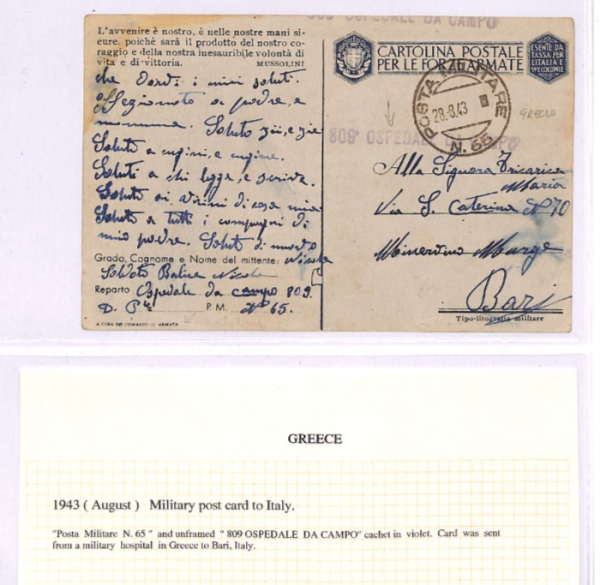 809° OSPEDALE DA CAMPO
L'avvenire è nostro, è nelle nostre mani si-
cure, poichè sarà il prodotto del nostro co-
raggio e della nostra inesauribile volontà di
vita e di vittoria. MUSSOLINI
che dardi i miei saluti.
a padre, e
mamma. Saluto zii, e zie
Saluto a cugini, e cugine.
Saluti a chi legge, e scrive.
Saluto ai vicini di casa mia
Saluto a tutti i compagni di
mio padre. Saluti di nuovo
Grado, Cognome e Nome del mittente: Nicola
Soldato Nicola
Reparto Ospedale da campo 809.
P. M. N° 65.
A CURA DEL COMANDO
CARTOLINA POSTALE
PER LE FORZE ARMATE
ESENTE DA
TASSA PER
L'ITALIA E
SUE COLONIE
POSTA MILITARE
28.8.43
N. 65
GRECIA
809° OSPEDALE DA CAMPO
Alla Signora Tricarico
Maria
Via S. Caterina N° 70
Minervino Murge
Bari
Tipo-litografia militare
GREECE
1943 ( August ) Military post card to Italy.
"Posta Militare N. 65 " and unframed " 809 OSPEDALE DA CAMPO" cachet in violet. Card was sent
from a military hospital in Greece to Bari, Italy.